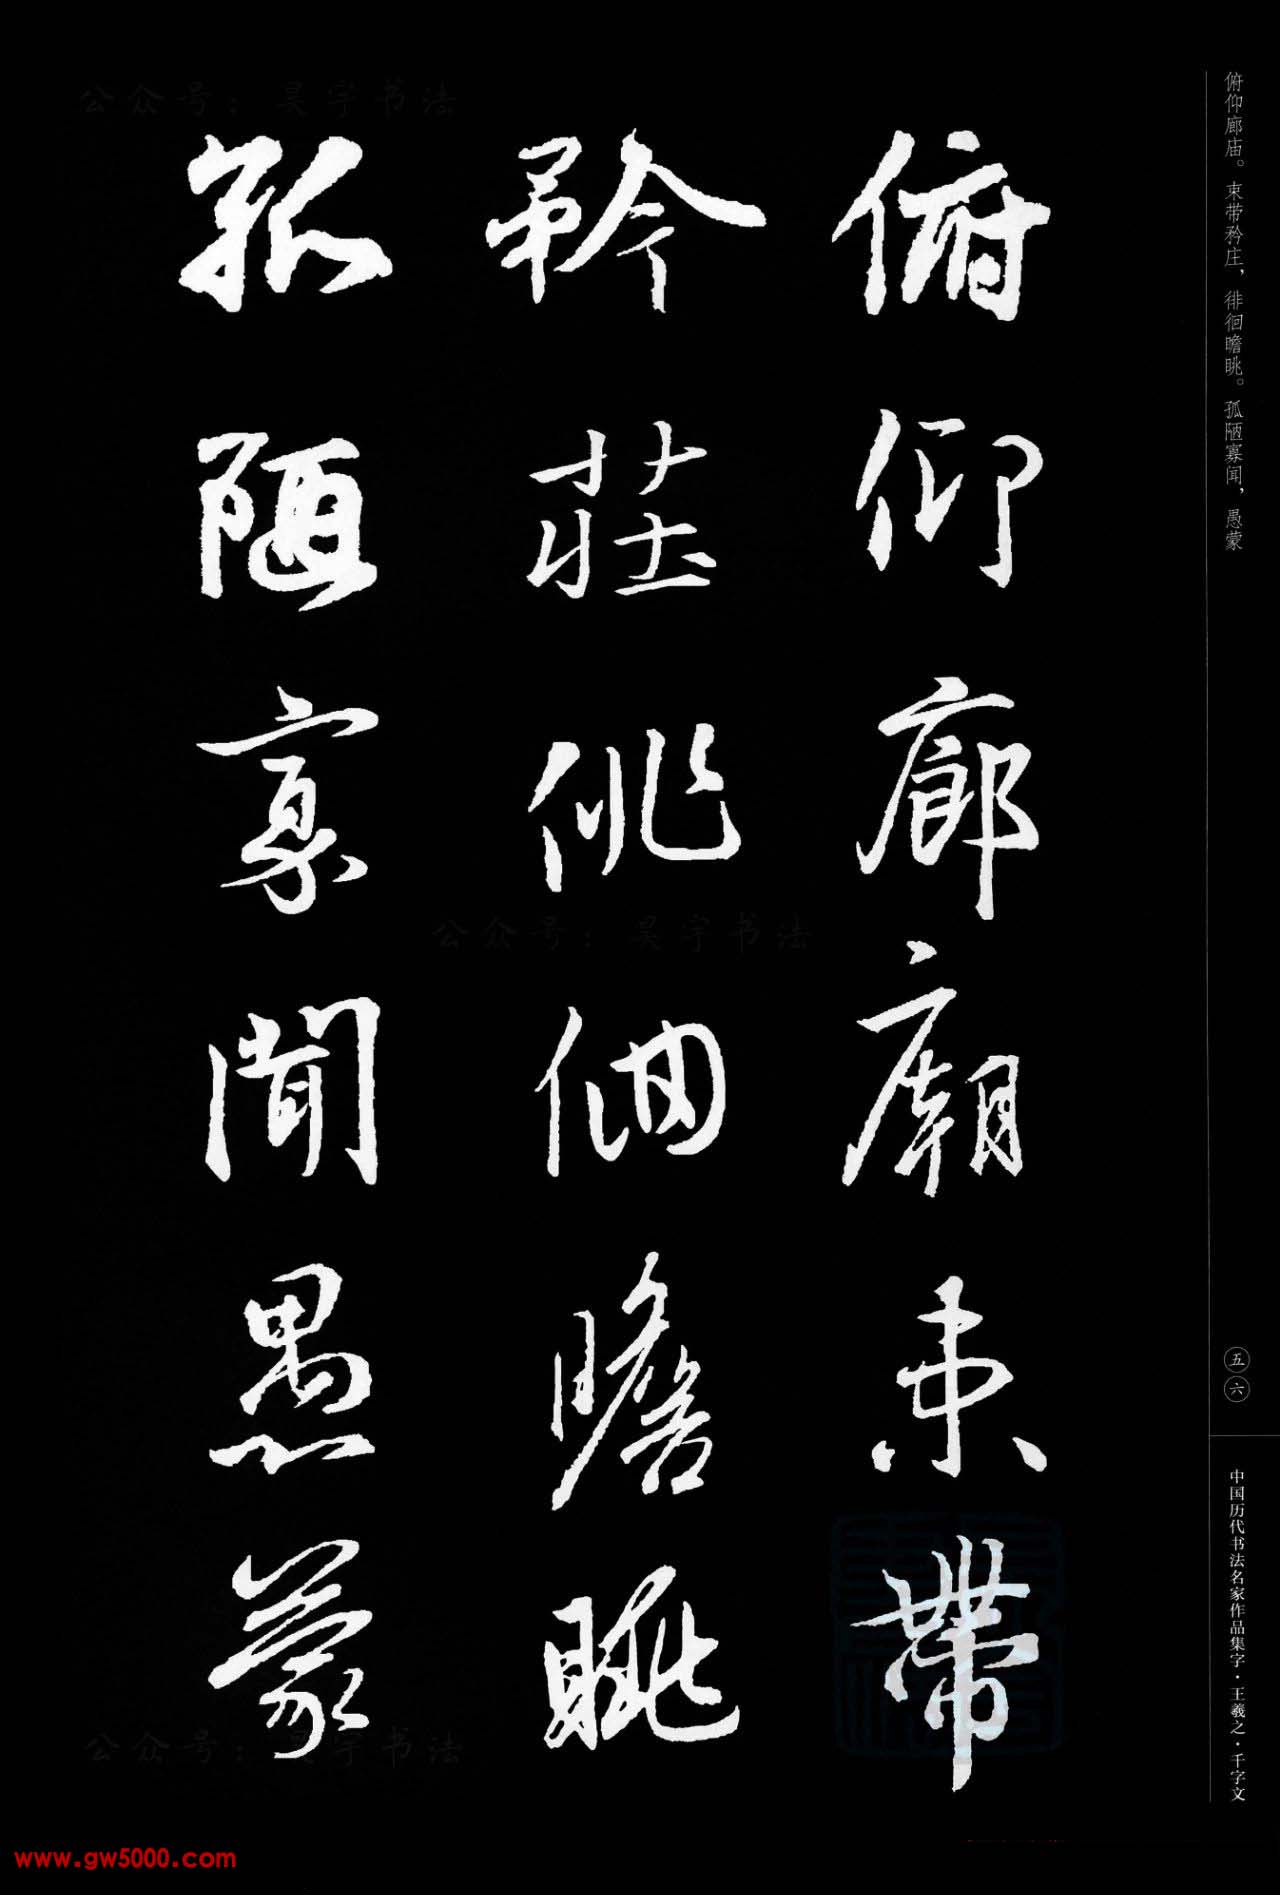 俯仰廊庙。束带矜庄，徘徊瞻眺。孤陋寡闻，愚蒙
俯仰廊廟束帶
矜莊徘徊瞻眺
孤陋寡聞愚蒙
五六
中国历代书法名家作品集字·王羲之·千字文
公众号：昊宇书法
公众号：昊宇书法
公众号：昊宇书法
www.gw5000.com